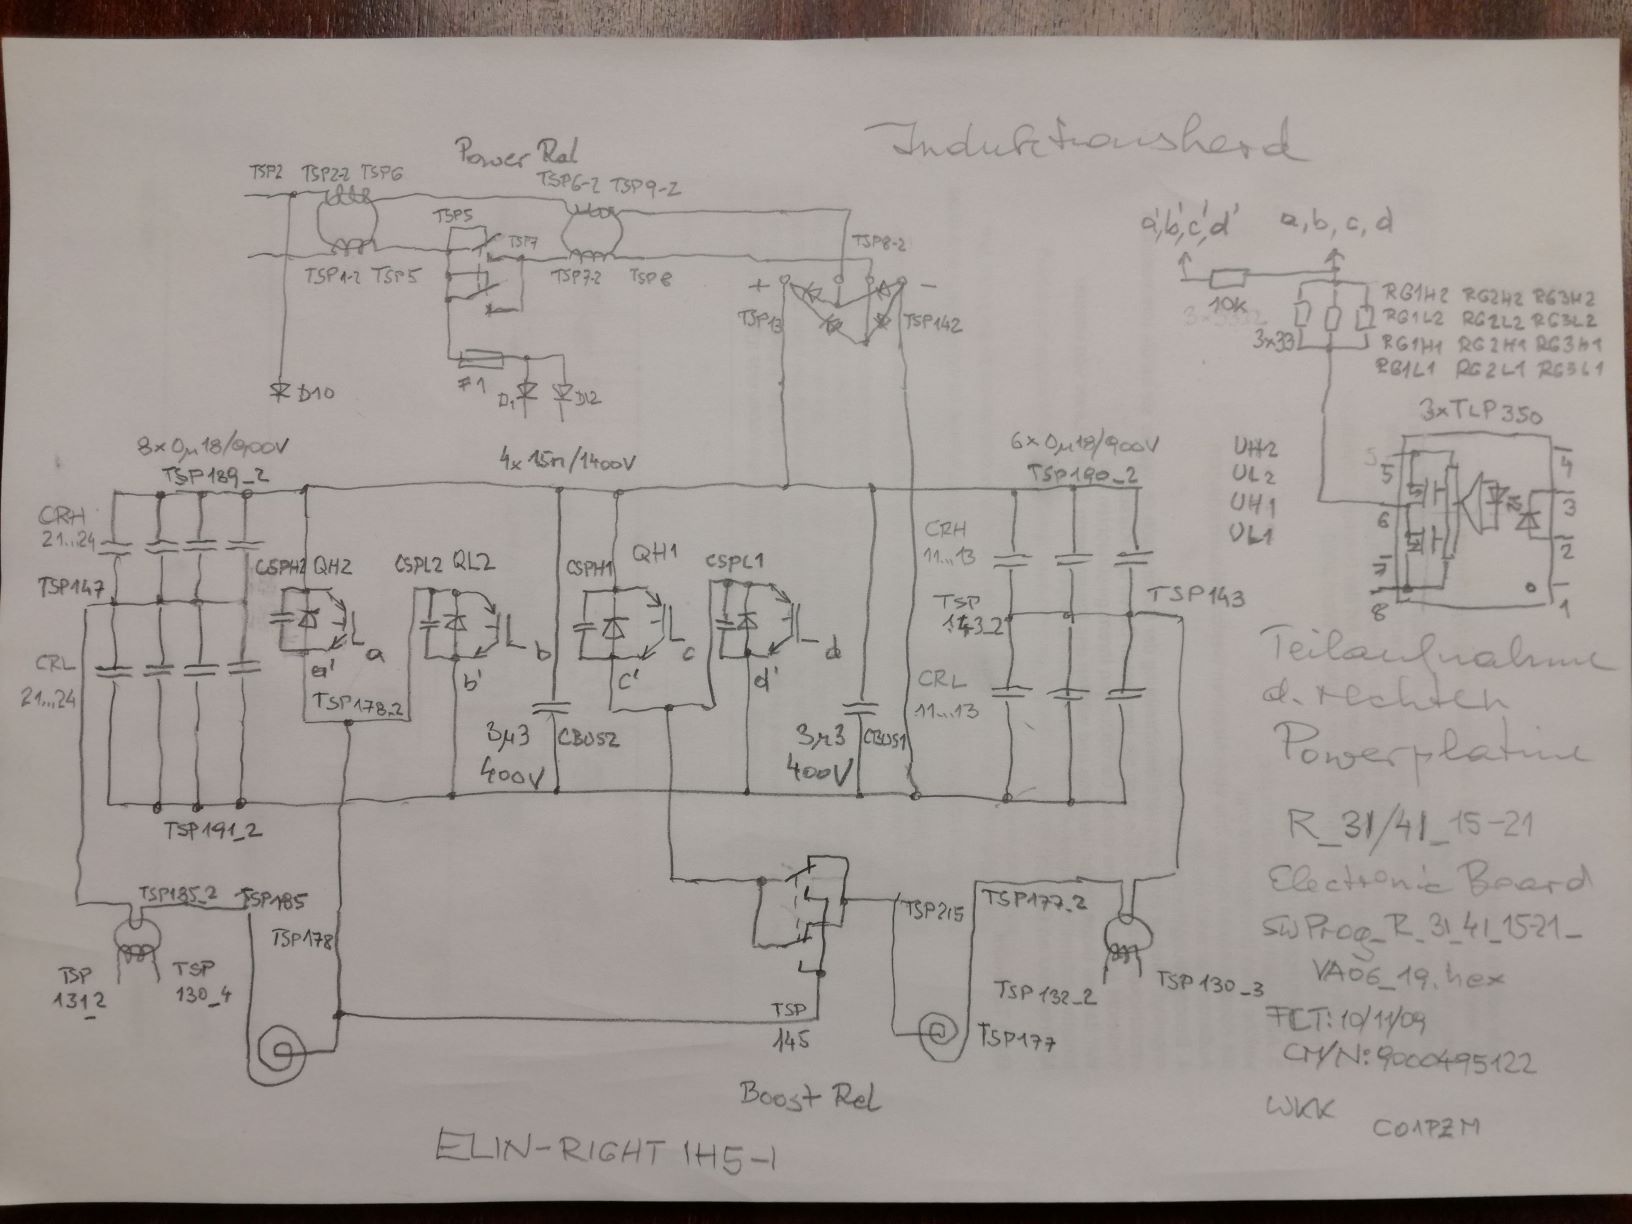 Induktionsherd
Power Rel
TSP2 TSP2-2 TSP6
TSP6-2 TSP9-2
TSP5
TSP7
TSP8-2
TSP1-2 TSP5
TSP7-2 TSP8
+
-
TSP13
TSP142
F1
D10
D1
D12
a',b',c',d' a, b, c, d
10K
3x33
RG1H2 RG2H2 RG3H2
RG1L2 RG2L2 RG3L2
RG1H1 RG2H1 RG3H1
RG1L1 RG2L1 RG3L1
3xTLP350
UH2
UL2
UH1
UL1
5
6
7
8
4
3
2
1
8x0µ18/900V
TSP189_2
4x 15n/1400V
6x0µ18/900V
TSP190_2
CRH
21...24
TSP147
CRL
21...24
CSPH2 QH2
CSPL2 QL2
CSPH1 QH1
CSPL1
a' a
b' b
c' c
d' d
TSP178_2
3µ3 CBUS2
400V
3µ3 CBUS1
400V
CRH
11...13
TSP
143_2
TSP143
CRL
11...13
TSP191_2
TSP185_2 TSP185
TSP178
TSP
131_2
TSP
130_4
TSP215
TSP177_2
TSP132_2
TSP130_3
TSP
145
TSP177
Boost Rel
ELIN-RIGHT IH5-1
Teilaufnahme
d. rechten
Powerplatine
R_31/41_15-21
Electronic Board
SWProg_R_31_41_15-21_
VA06_19.hex
FCT: 10/11/09
CM/N: 9000495122
WKK
C01PZM